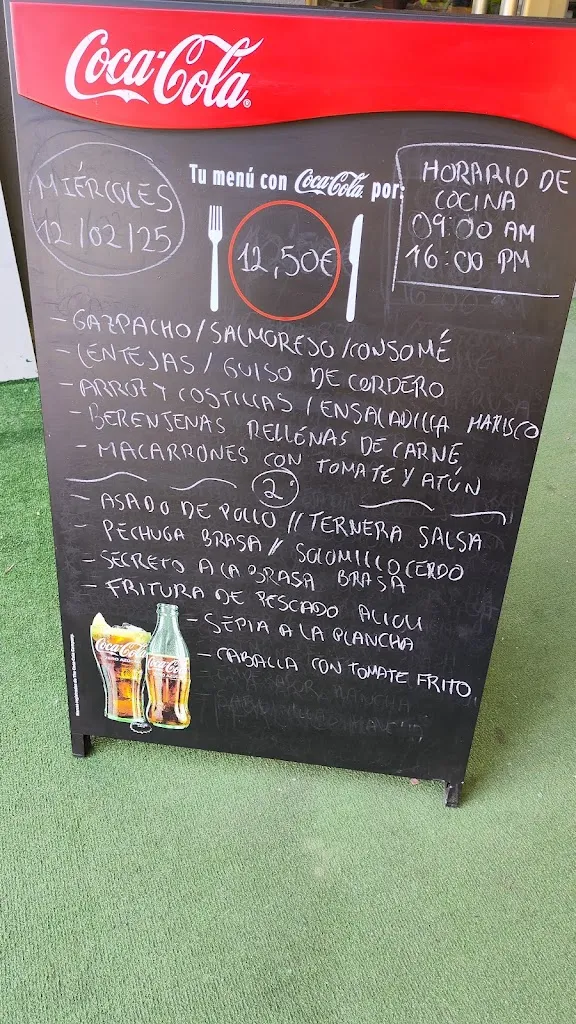 Coca-Cola
MIÉRCOLES
12/02/25
Tu menú con Coca-Cola por:
12,50€
HORARIO DE
COCINA
09:00 AM
16:00 PM
- GAZPACHO/SALMOREJO/CONSOMÉ
- LENTEJAS / GUISO DE CORDERO
- ARROZ Y COSTILLAS / ENSALADILLA MARISCO
- BERENJENAS RELLENAS DE CARNE
- MACARRONES CON TOMATE Y ATÚN
2º
- ASADO DE POLLO // TERNERA SALSA
- PECHUGA BRASA // SOLOMILLO CERDO BRASA
- SECRETO A LA BRASA
- FRITURA DE PESCADO ALIOLI
- SEPIA A LA PLANCHA
- CABALLA CON TOMATE FRITO
Coca-Cola
Coca-Cola